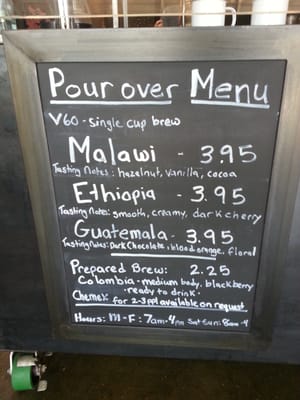 Pour over Menu
V60 - single cup brew
Malawi - 3.95
Tasting Notes: hazelnut, vanilla, cocoa
Ethiopia - 3.95
Tasting Notes: smooth, creamy, dark cherry
Guatemala - 3.95
Tasting Notes: Dark Chocolate, blood orange, floral
Prepared Brew: 2.25
Colombia - medium body, blackberry
- ready to drink -
Chemex: for 2-3 ppl available on request
Hours: M-F: 7am-4pm Sat Sun: 8am-4